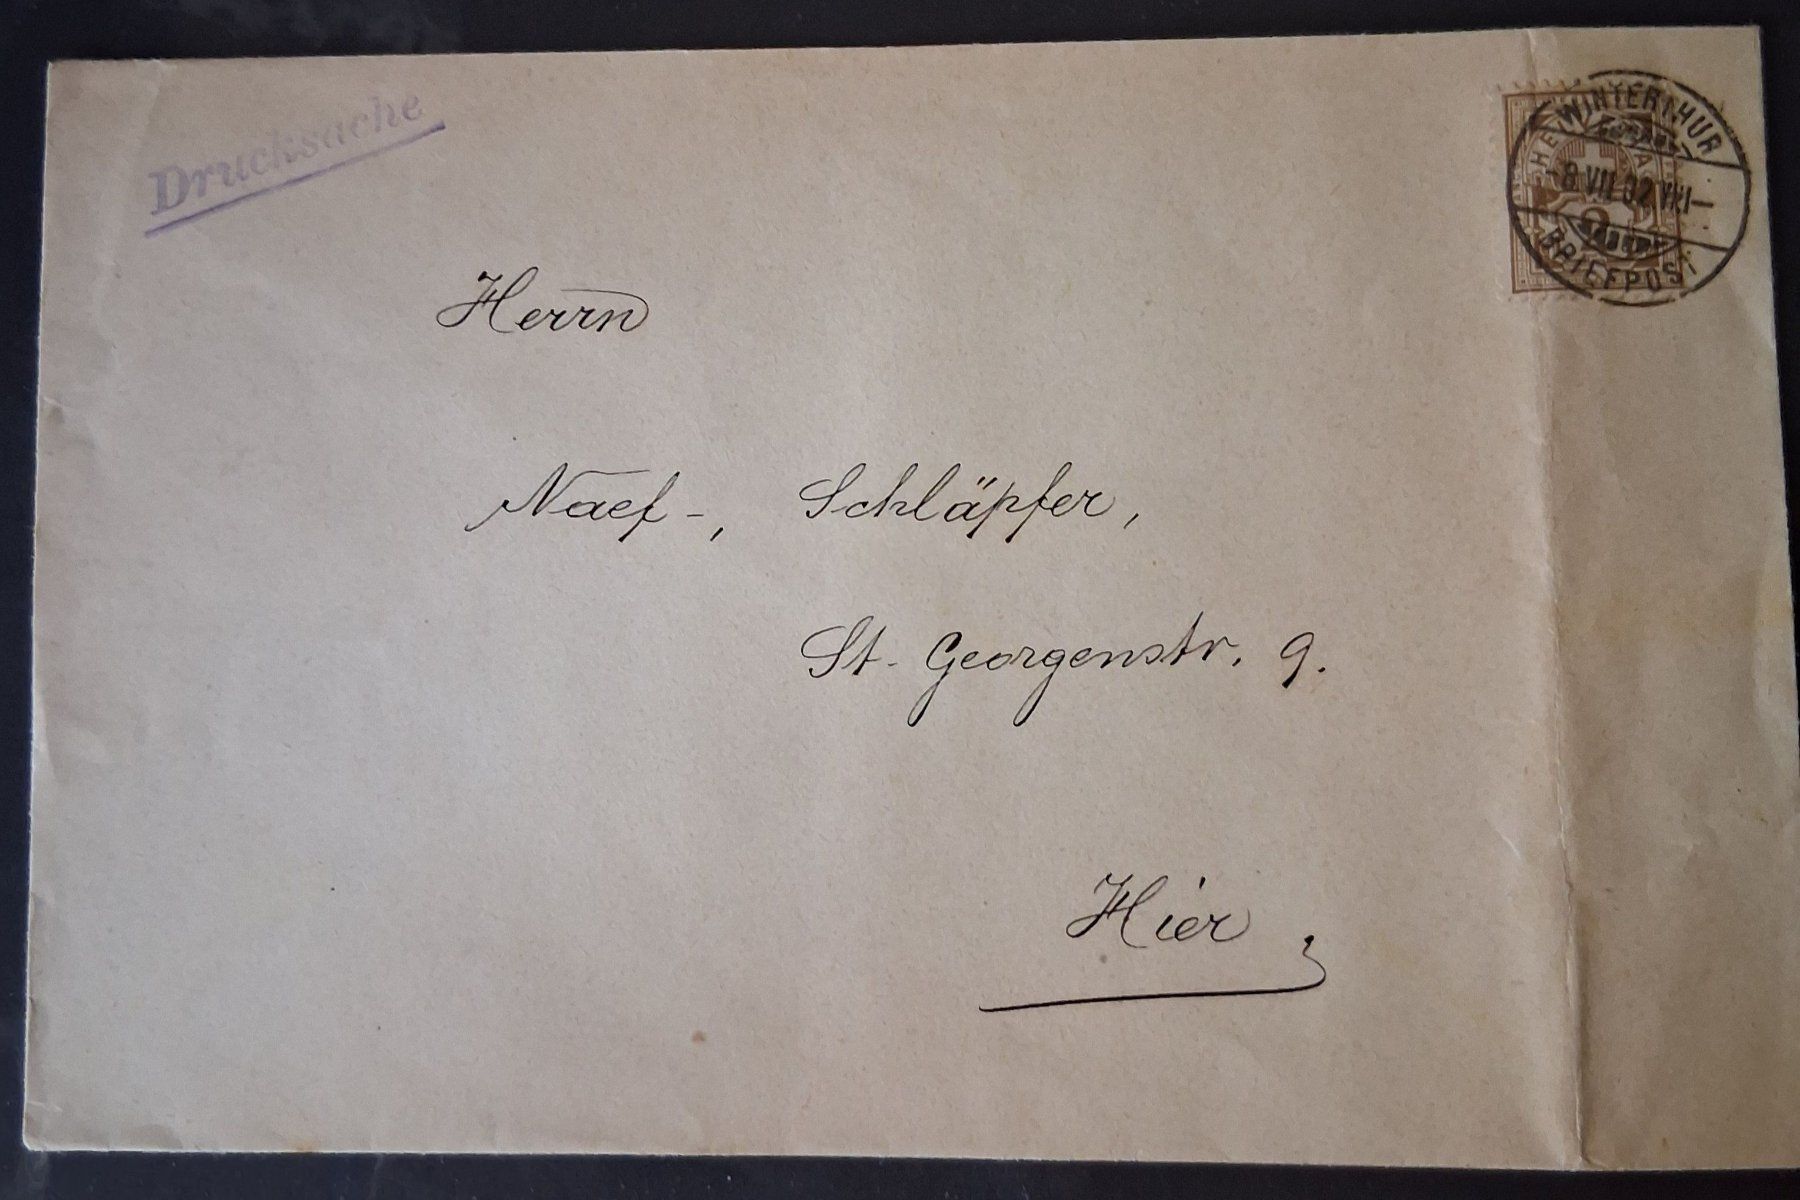 Drucksache
WINTERTHUR
-8 VII 02 VIII-
BRIEFPOST
HE A
2
Herrn
Naef-, Schläpfer,
St. Georgenstr. 9.
Hier